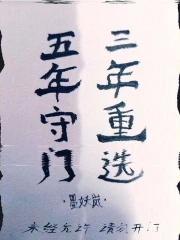 五年守门
三年重选
未经允许 请勿开门